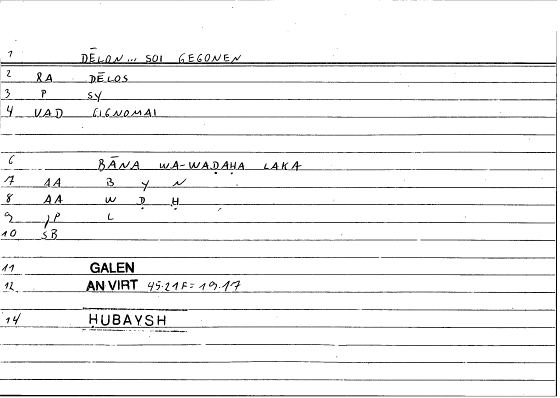 1 DĒLON... SOI GEGONEN
2 RA DĒLOS
3 P SY
4 VAD GIGNOMAI
6 BĀNA WA-WAḌAḤA LAKA
7 AA B Y N
8 AA W Ḍ Ḥ
9 ,P L
10 SB
11 GALEN
12 AN VIRT 45.21F = 19.17
14 ḤUBAYSH